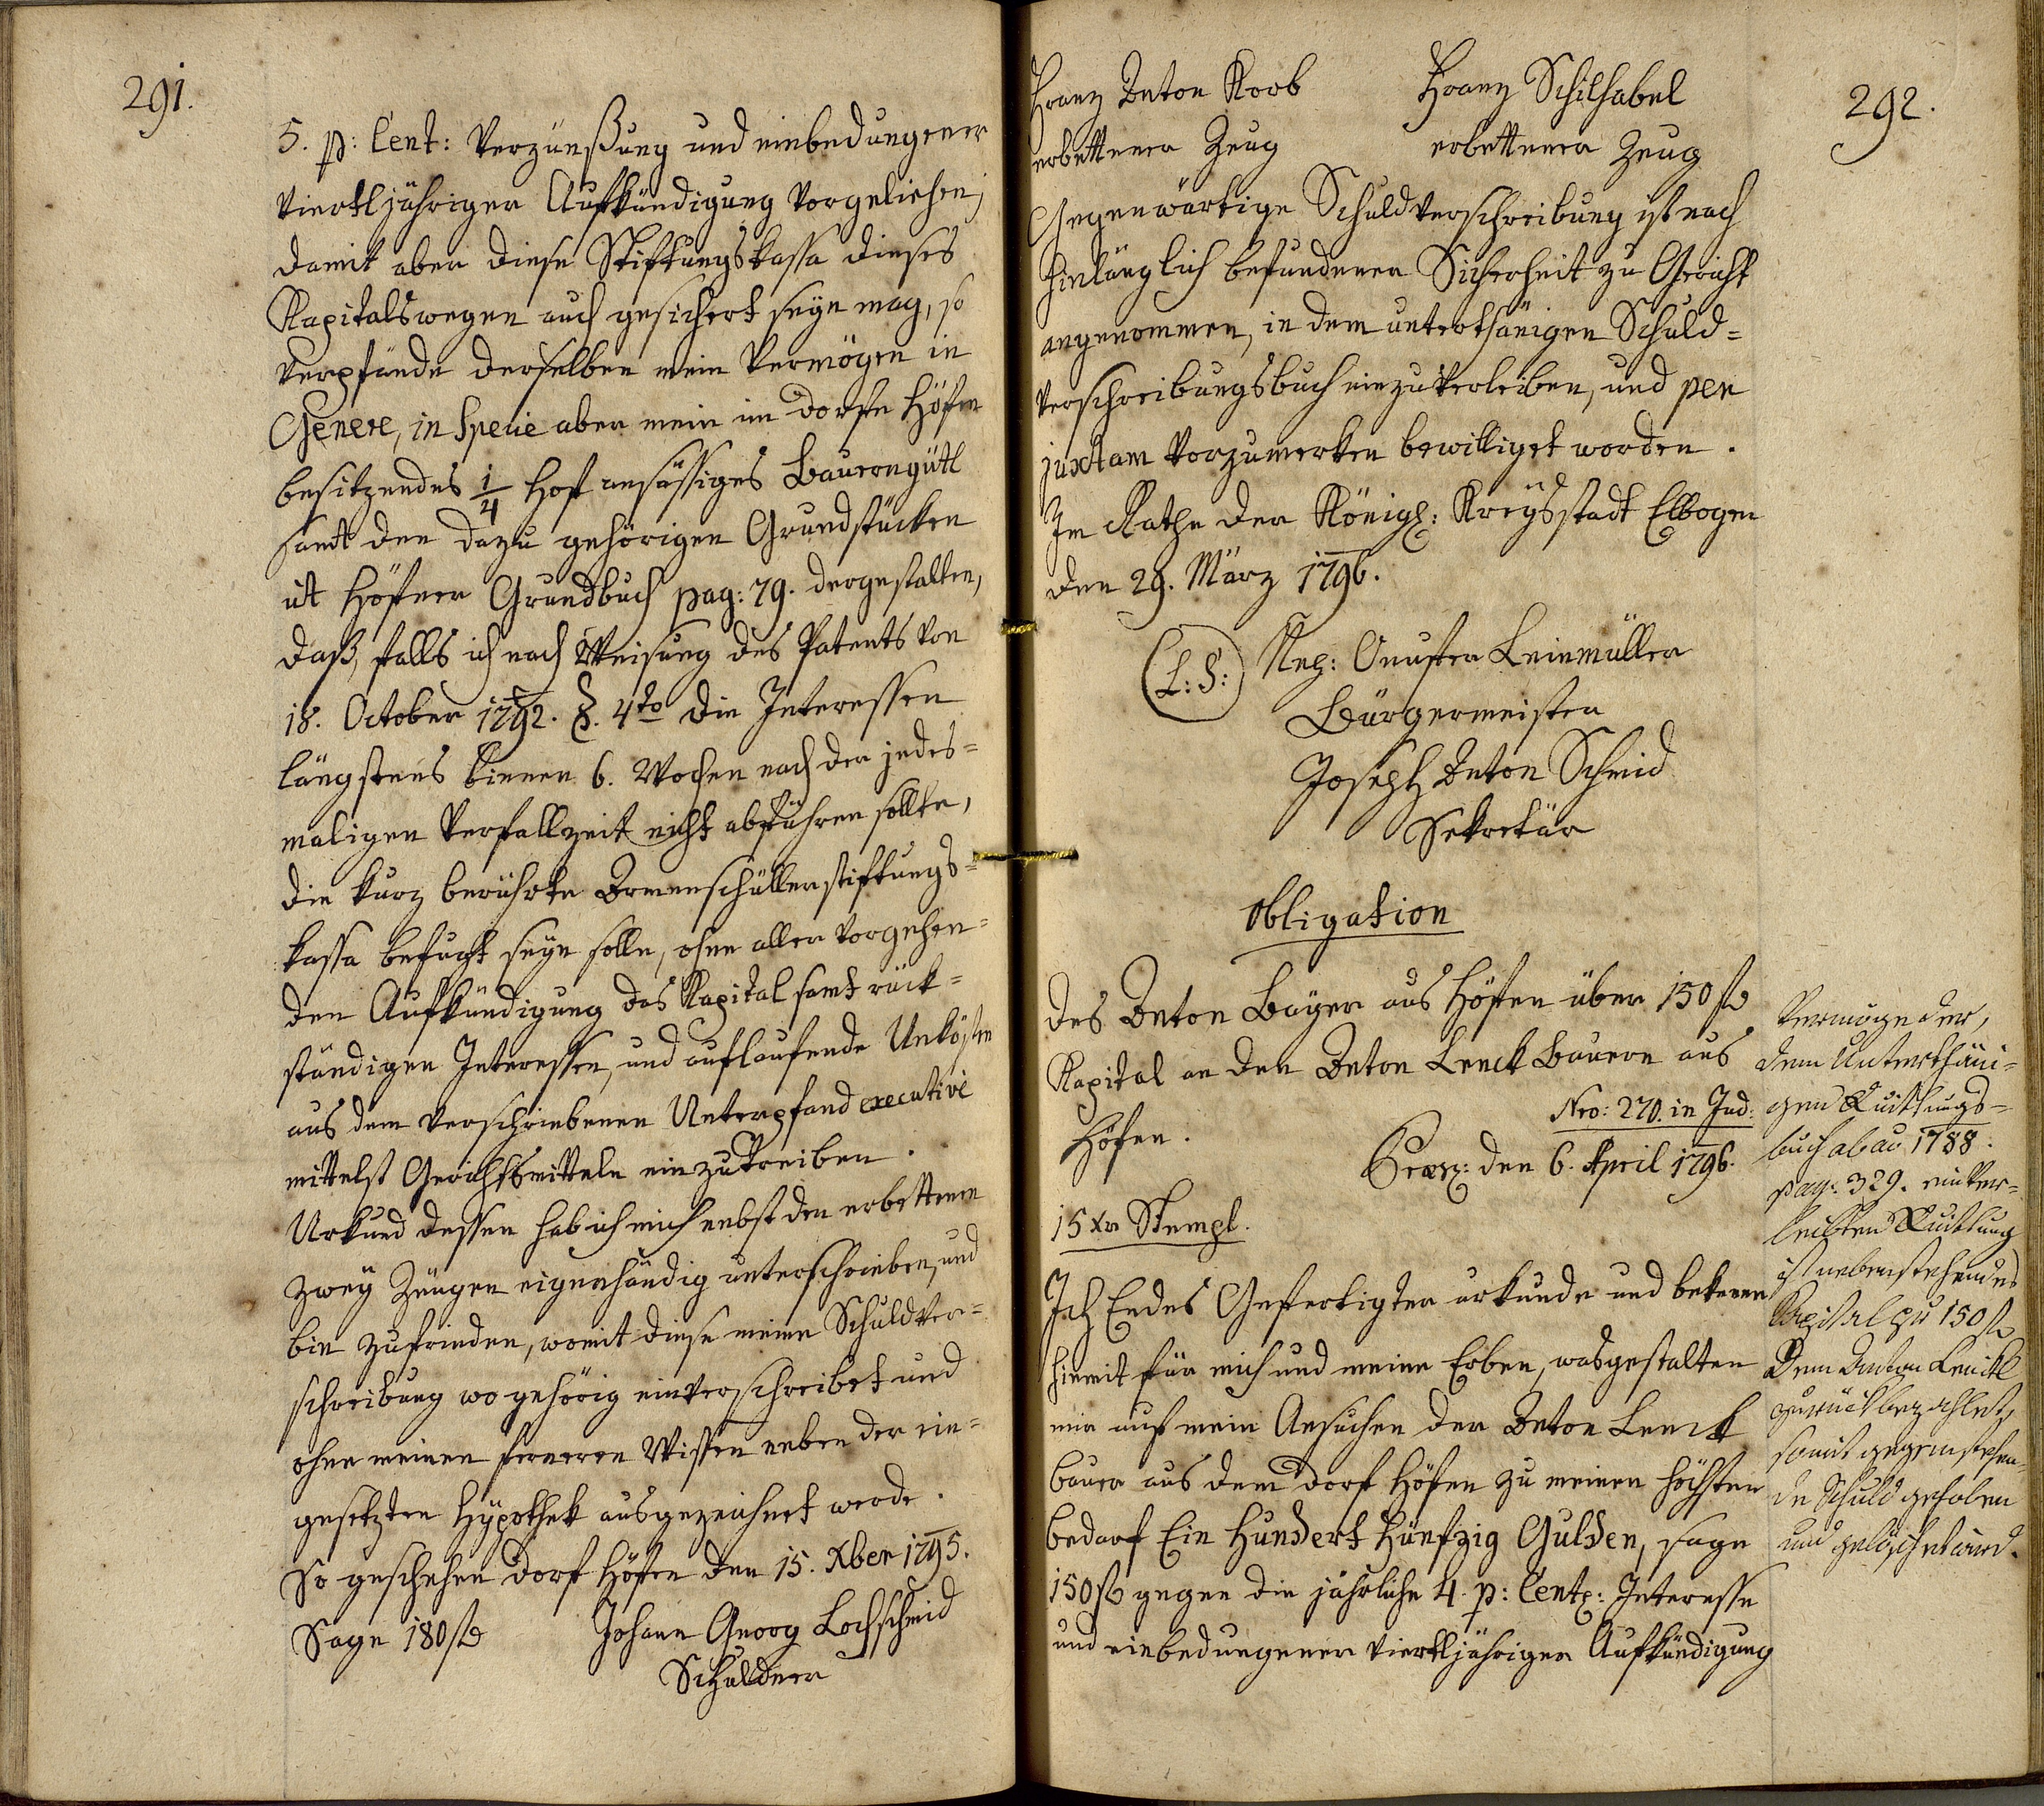 291.
5. p: Cent: Verzünßung und einbedungener
viertljähriger Aufkündigung vorgeliehen;
damit aber diese Stiftungskassa dieses
Kapitalswegen auch gesichert seÿn mag, so
verpfände derselben mein Vermögen in
Genere, in Specie aber mein im dorfe Höfen
besitzendes 1/4 Hof ansässiges Bauerngütl
samt den dazu gehörigen Grundstücken
ut Höfner Grundbuch pag: 79. dergestalten,
daß, falls ich nach Weisung des Patents von
18. October 1792. §. 4to die Interessen
längstens binnen 6. Wochen nach der jedes=
maligen Verfallzeit nicht abführen sollte,
die kurz berührte Armenschüllerstiftungs=
kassa befugt seÿn solle, ohne aller vorgehen=
den Aufkündigung das Kapital samt rück=
ständigen Interessen, und auflaufende Unkösten
aus dem verschriebenen Unterpfand executive
mittelst Gerichtsmitteln einzutreiben.
Urkund dessen hab ich mich nebst den erbettenen
zweÿ Zeugen eigenhändig unterschrieben, und
bin zufrieden, womit diese meine Schuldver=
schreibung wo gehörig einverschreibet und
ohne meinen ferneren Wissen neben der ein=
gesetzten Hÿpothek ausgezeichnet werde.
So geschehen dorf Höfen den 15. Xber 1795.
Sage 180 fl
Johann Georg Lochschmid
Schuldner
292.
Franz Anton Korb
Franz Schilhabel
erbettener Zeug
erbettener Zeug
Gegenwärtige Schuldverschreibung ist nach
hinlänglich befundener Sicherheit zu Gericht
angenommen, in dem unterthänigen Schuld=
verschreibungsbuch einzuverleiben, und per
juxtam vorzumerken bewilliget worden.
Im Rathe der Königl: Kreÿsstadt Elbogen
den 29. März 1796.
(L: S:)
Nep: Leinmüller
Bürgermeister
Joseph Anton Schmid
Sekretär
Obligation
des Anton Baÿer aus Höfen über 150 fl
Kapital an den Anton Lenck Bauern aus
Höfen.
Nro: 270. in Jud:
Præs: den 6. April 1796.
15 Xr Stempl.
Ich Endes Gefertigter urkunde und bekenne
hiemit für mich und meine Erben, wasgestalten
mir auf mein Ansuchen der Anton Lenck
bauer aus dem dorf Höfen zu meinen höchsten
bedarf Ein Hundert Fünfzig Gulden, sage
150 fl gegen die jährliche 4. p: Cent: Interesse
und einbedungener viertljähriger Aufkündigung
Vermöge der,
dem Unterthäni=
gen Quittungs=
buch ab ao 1788.
pag: 329. einver=
leibten Quittung
ist nebenstehendes
Kapital zu 150 fl
dem Anton Lenckl
zurückbezahlet,
somit gegenstehen=
de Schuld gehoben
und gelöschet wird.